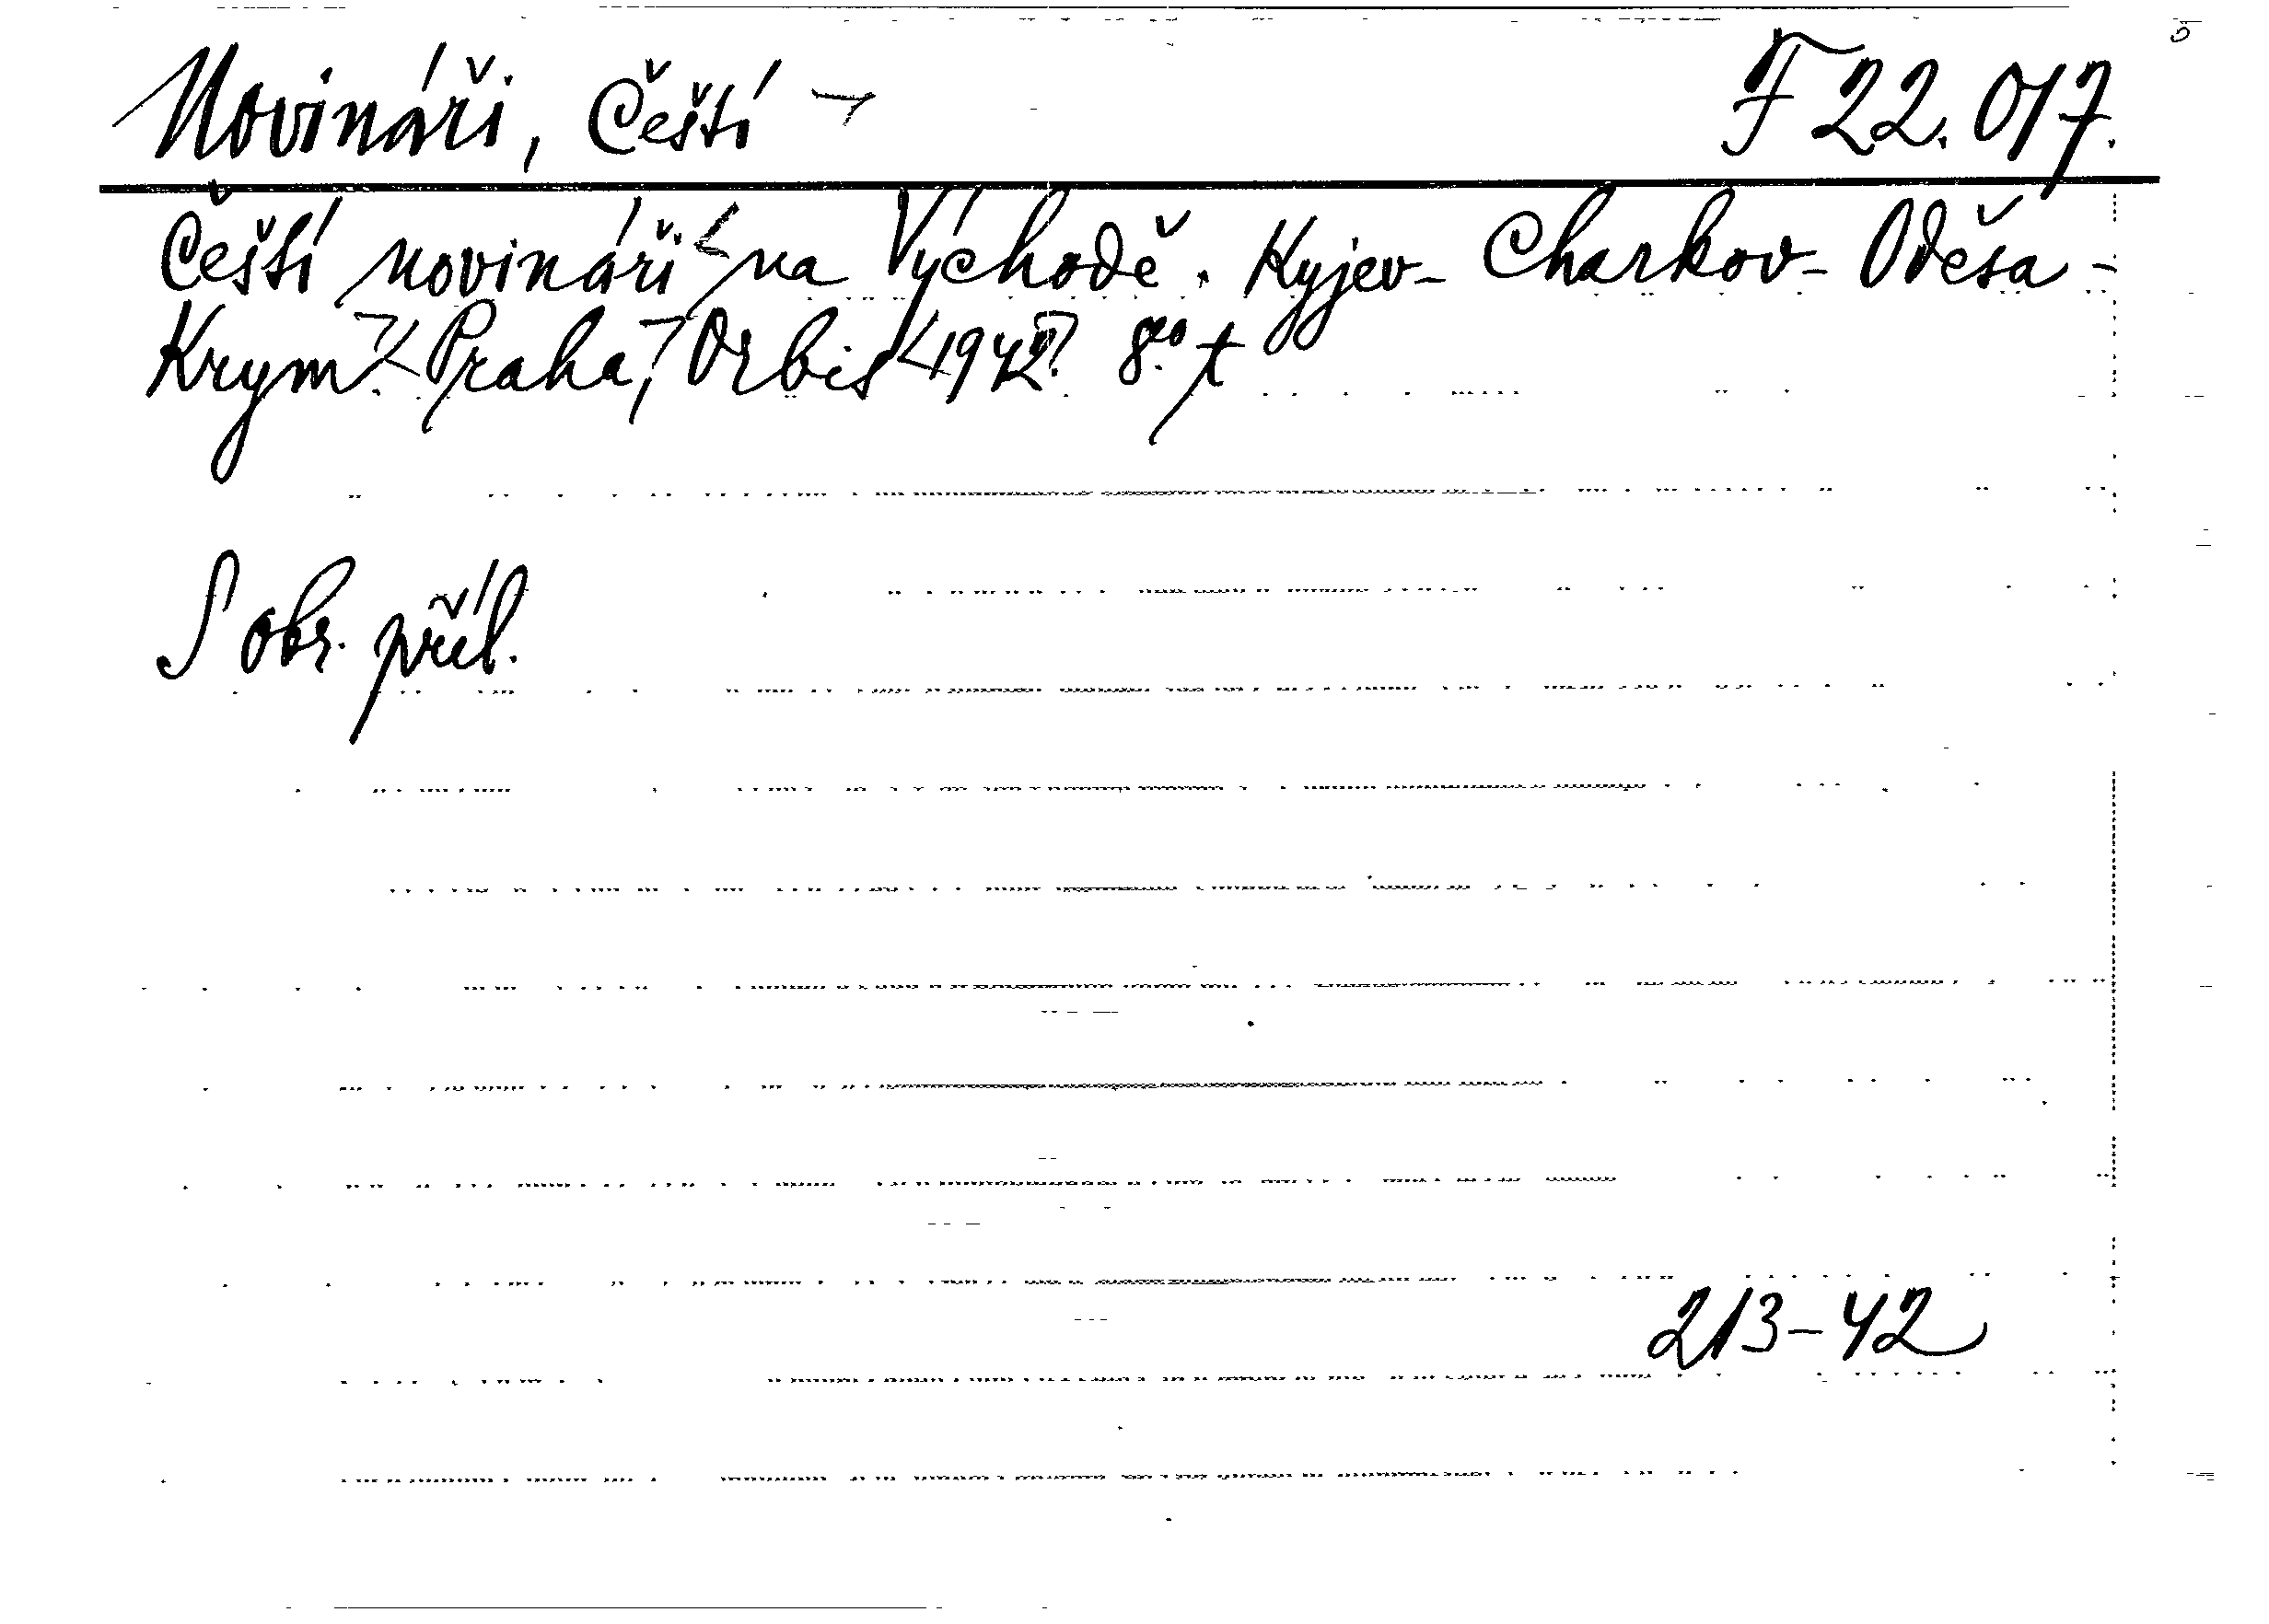 Novináři, Čeští
F 22.017.
Čeští novináři na Východě. Kyjev - Charkov - Oděsa -
Krym. Praha, Orbis 1942. 8°
S obr. příl.
213-42